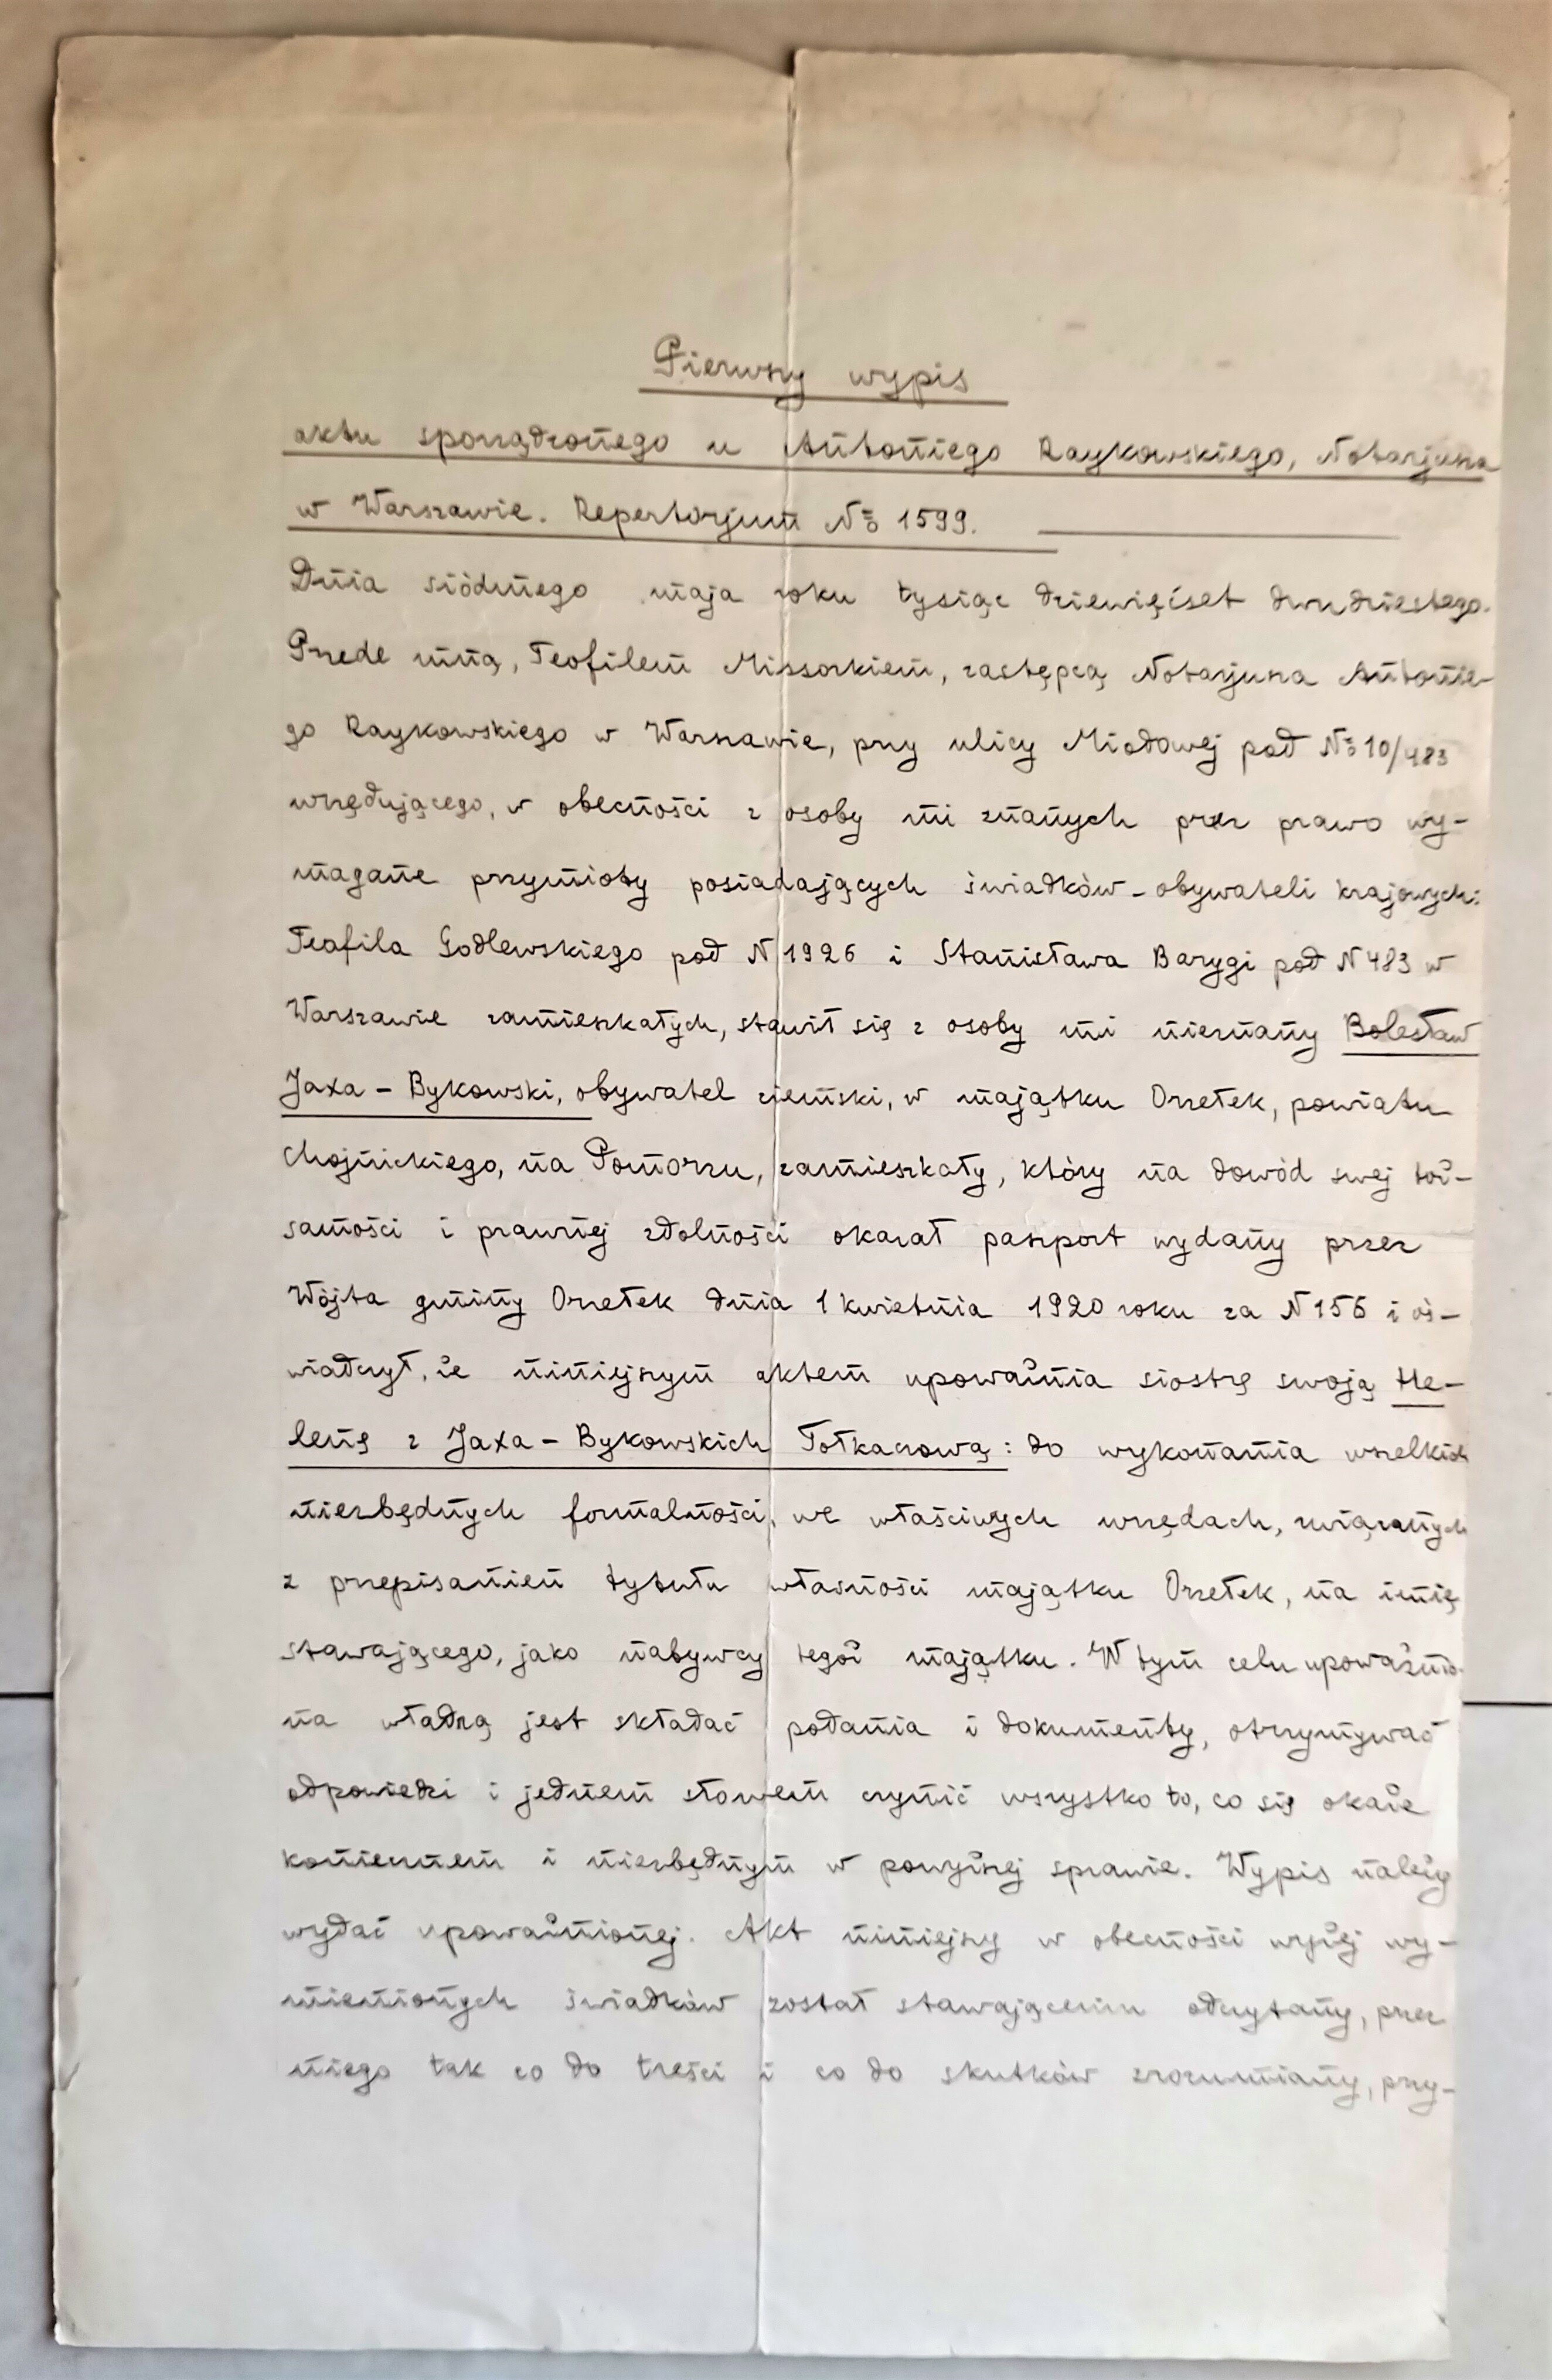 Pierwszy wypis
aktu sporządzonego u Antoniego Raykowskiego, Notarjusza
w Warszawie. Repertorjum № 1599.
Dnia siódmego maja roku tysiąc dziewięćset dwudziestego.
Przede mną, Teofilem Missorkiem, zastępcą Notarjusza Antonie-
go Raykowskiego w Warszawie, przy ulicy Miodowej pod № 10/483
urzędującego, w obecności z osoby mi znanych przez prawo wy-
magane przymioty posiadających świadków - obywateli krajowych:
Teofila Godlewskiego pod N 1926 i Stanisława Barygi pod N 483 w
Warszawie zamieszkałych, stawił się z osoby mi nieznany Bolesław
Jaxa - Bykowski, obywatel ziemski, w majątku Orzełek, powiatu
Chojnickiego, na Pomorzu, zamieszkały, który na dowód swej toż-
samości i prawnej zdolności okazał paszport wydany przez
Wójta gminy Orzełek dnia 1 kwietnia 1920 roku za N 156 i oś-
wiadczył, że niniejszym aktem upoważnia siostrę swoją He-
lenę z Jaxa - Bykowskich Tołkaczową: do wykonania wszelkich
niezbędnych formalności, we właściwych urzędach, związanych
z przepisaniem tytułu własności majątku Orzełek, na imię
stawającego, jako nabywcy tegoż majątku. W tym celu upoważnio-
na władzą jest składać podania i dokumenty, otrzymywać
odpowiedzi i jednem słowem czynić wszystko to, co się okaże
koniecznem i niezbędnym w powyższej sprawie. Wypis należy
wydać upoważnionej. Akt niniejszy w obecności wyżej wy-
mienionych świadków został stawającemu odczytany, przez
niego tak co do treści i co do skutków zrozumiany, przy-